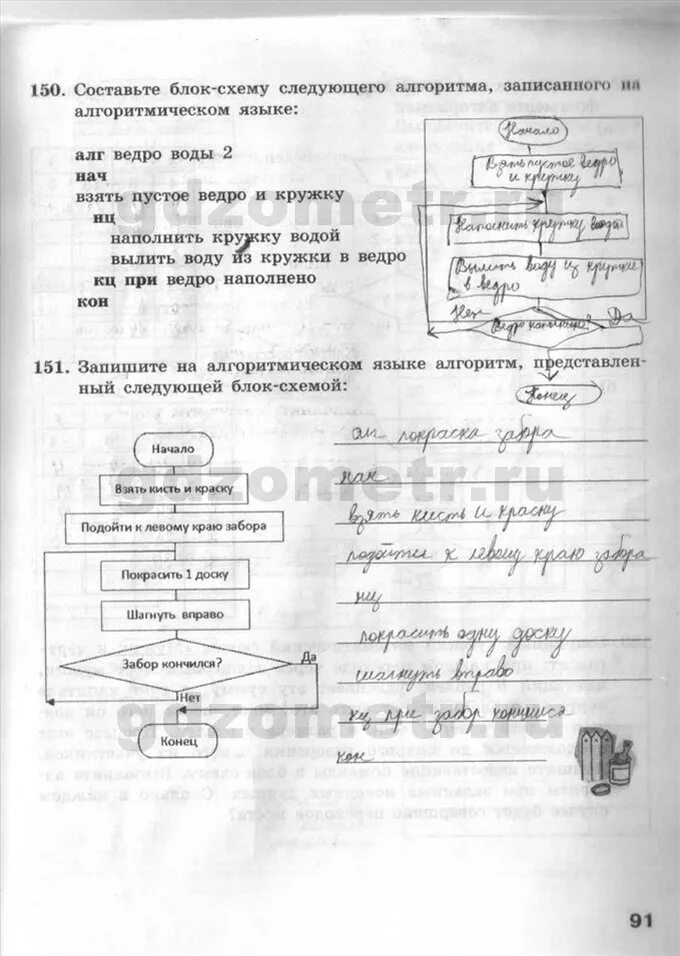 150. Составьте блок-схему следующего алгоритма, записанного на
алгоритмическом языке:
алг ведро воды 2
нач
взять пустое ведро и кружку
нц
наполнить кружку водой
вылить воду из кружки в ведро
кц при ведро наполнено
кон
Начало
Взять пустое ведро
и кружку
Наполнить кружку водой
Вылить воду из кружки
в ведро
Нет
Ведро наполнено?
Да
Конец
151. Запишите на алгоритмическом языке алгоритм, представлен-
ный следующей блок-схемой:
Начало
Взять кисть и краску
Подойти к левому краю забора
Покрасить 1 доску
Шагнуть вправо
Забор кончился?
Да
Нет
Конец
алг покраска забора
нач
взять кисть и краску
подойти к левому краю забора
нц
покрасить одну доску
шагнуть вправо
кц при забор кончился
кон
gdzometr.ru
gdzometr.ru
gdzometr.ru
91